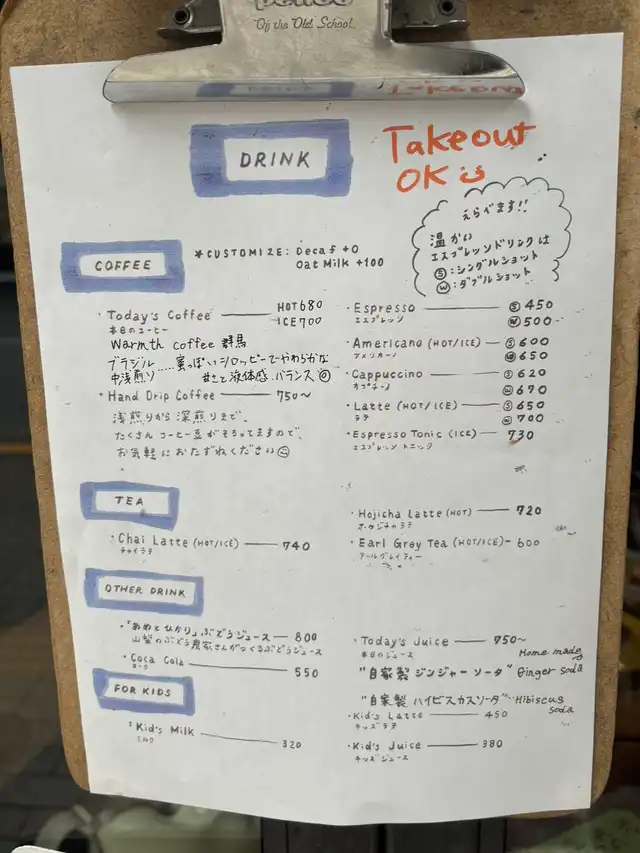 penco
"Of the Old School."
DRINK
Takeout
OK
えらべます!!
温かい
エスプレッソドリンクは
Ⓢ:シングルショット
Ⓦ:ダブルショット
COFFEE
*CUSTOMIZE: Decaf +0
Oat Milk +100
・Today's Coffee — HOT 680
ICE 700
本日のコーヒー
Warmth coffee 群馬
ブラジル……蜜っぽいシロッピーでやわらかな
中浅煎り 甘さと液体感.バランス◎
・Hand Drip Coffee — 750〜
浅煎りから深煎りまで、
たくさんコーヒー豆がそろってますので、
お気軽におたずねください
・Espresso — Ⓢ 450
エスプレッソ Ⓦ 500
・Americano (HOT/ICE) — Ⓢ 600
アメリカーノ Ⓦ 650
・Cappuccino — Ⓢ 620
カプチーノ Ⓦ 670
・Latte (HOT/ICE) — Ⓢ 650
ラテ Ⓦ 700
・Espresso Tonic (ICE) — 730
エスプレッソ トニック
TEA
・Chai Latte (HOT/ICE) — 740
チャイラテ
・Hojicha Latte (HOT) — 720
ホウジチャラテ
・Earl Grey Tea (HOT/ICE) – 600
アールグレイティー
OTHER DRINK
・「あめとひかり」ぶどうジュース — 800
山梨のぶどう農家さんがつくるぶどうジュース
・Coca Cola — 550
コーラ
・Today's Juice — 750〜
本日のジュース
Home made
"自家製 ジンジャーソーダ" Ginger Soda
"自家製 ハイビスカスソーダ" Hibiscus
Soda
FOR KIDS
・Kid's Milk — 320
ミルク
・Kid's Latte — 450
キッズラテ
・Kid's Juice — 380
キッズジュース